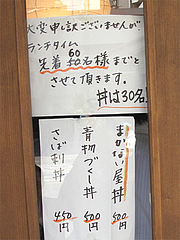 大変申し訳ございませんが
ランチタイム
先着60名様までと
させて頂きます。
丼は30名
まかない屋丼 500円
青物づくし丼 500円
さば刺丼 450円